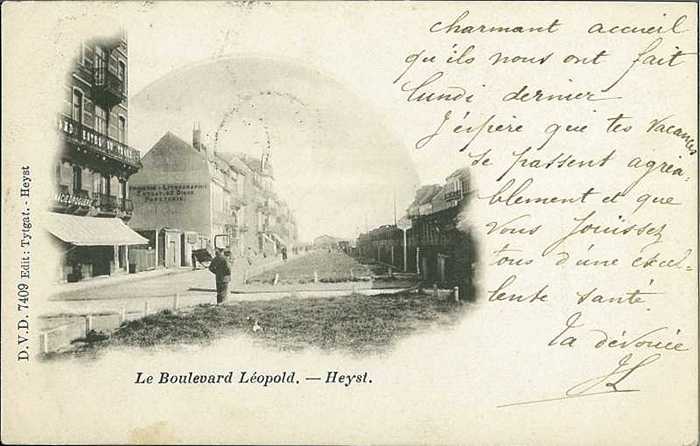 charmant accueil
qu'ils nous ont fait
lundi dernier
J'espère que tes vacances
se passent agréa-
blement et que
vous jouissez
tous d'une excel-
lente santé.
Ta dévouée
JL
Le Boulevard Léopold. — Heyst.
D.V.D. 7409 Edit: Tytgat. - Heyst
PAPETERIE